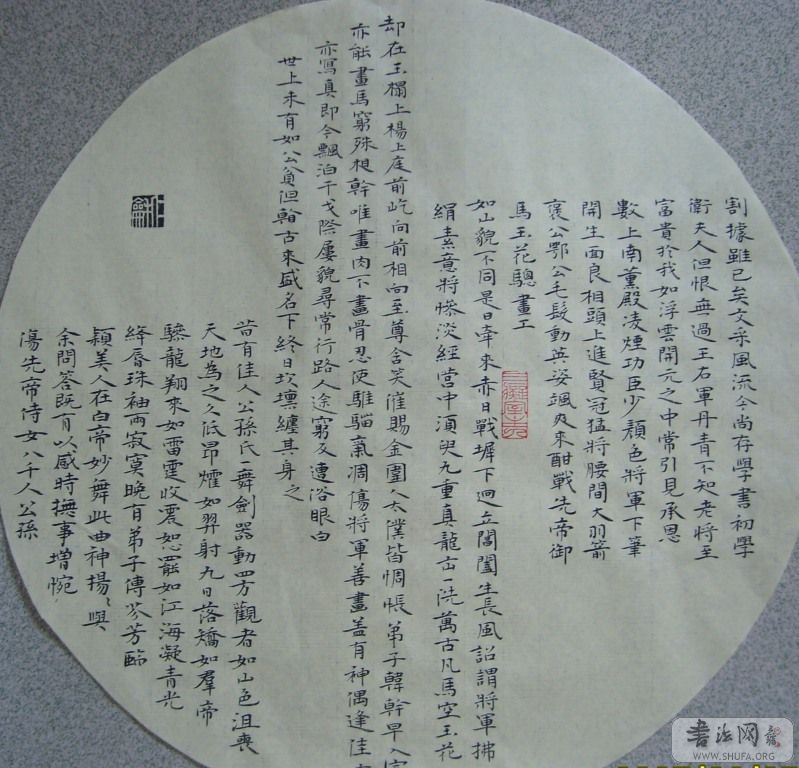 割據雖已矣文采風流今尚存學書初學
衛夫人但恨無過王右軍丹青不知老將至
富貴於我如浮雲開元之中常引見承恩
數上南薰殿凌煙功臣少顏色將軍下筆
開生面良相頭上進賢冠猛將腰間大羽箭
褒公鄂公毛髮動英姿颯爽來酣戰先帝御
馬玉花驄畫工
如山貌不同是日牽來赤日戰墀下迥立閶闔生長風詔謂將軍拂
絹素意將慘淡經營中須臾九重真龍出一洗萬古凡馬空玉花
却在玉榻上楊上庭前屹向前相向至尊含笑催賜金圉人太僕皆惆悵弟子韓幹早入室
亦能畫馬窮殊相幹唯畫肉不畫骨忍使驊騮氣凋傷將軍善畫蓋有神偶逢佳
亦寫真即今飄泊干戈際屢貌尋常行路人途窮反遭俗眼白
世上未有如公貧但看古來盛名下終日坎壈纏其身之
昔有佳人公孫氏一舞劍器動四方觀者如山色沮喪
天地為之久低昂㸌如羿射九日落矯如羣帝
驂龍翔來如雷霆收震怒罷如江海凝青光
絳唇珠袖兩寂寞晚有弟子傳芬芳臨
潁美人在白帝妙舞此曲神揚揚與
余問答既有以感時撫事增惋
傷先帝侍女八千人公孫
書法网
WWW.SHUFA.ORG